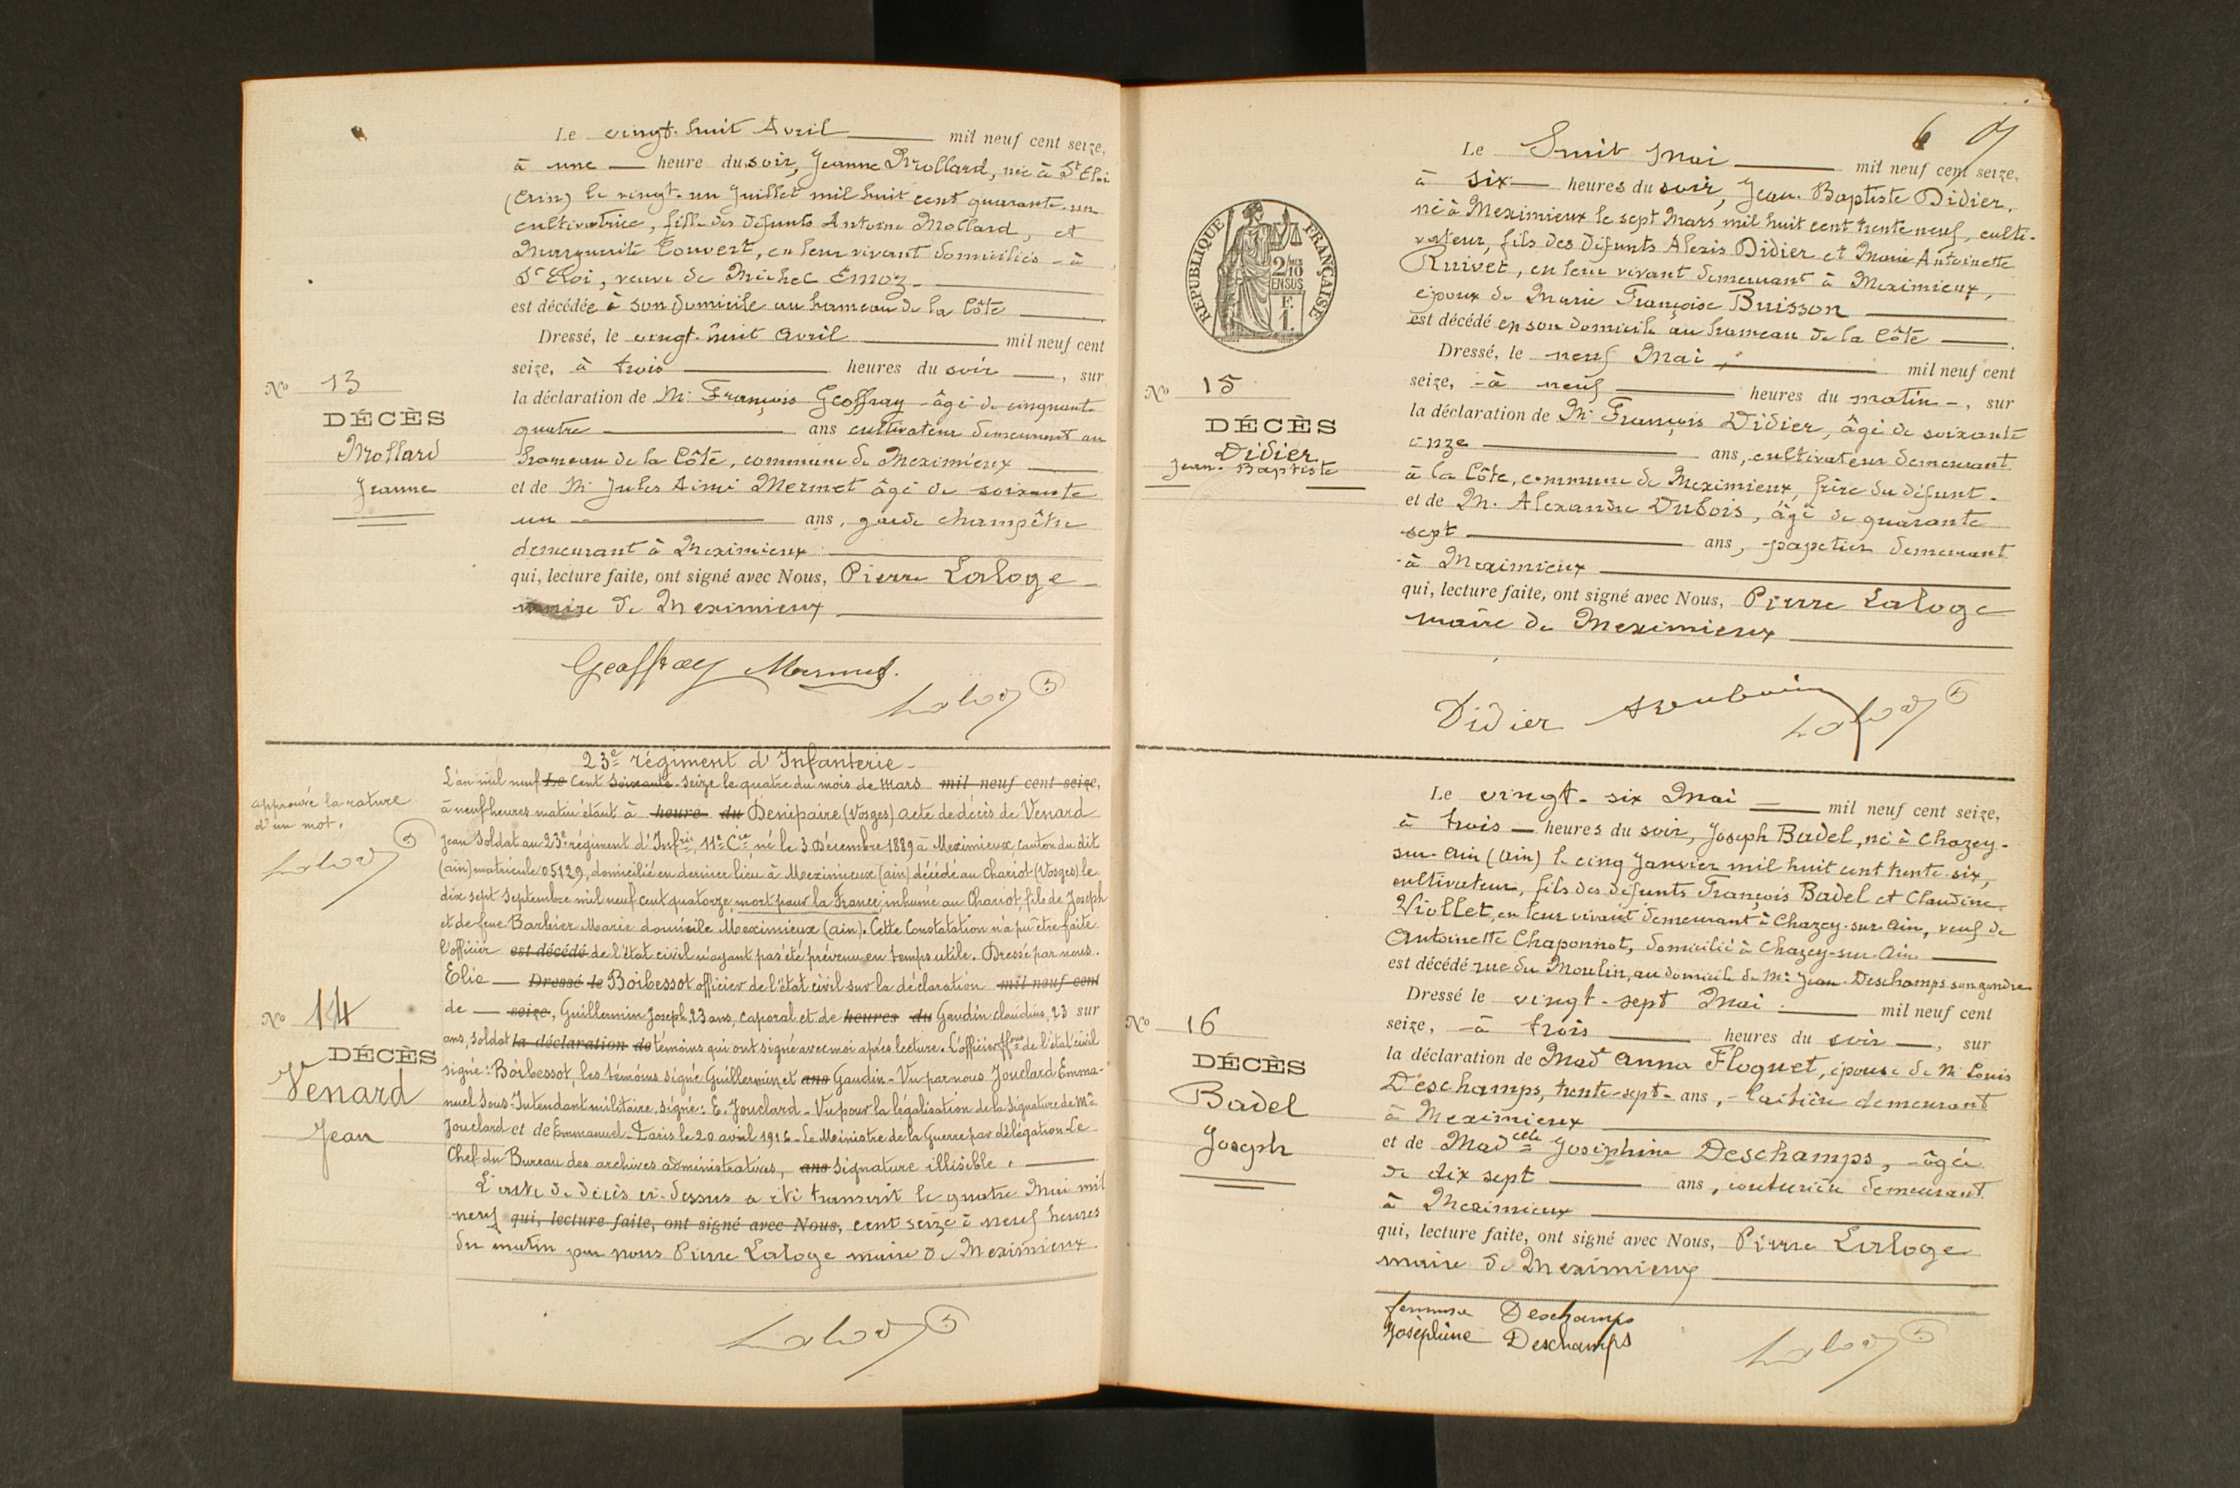 Le vingt-huit Avril mil neuf cent seize,
à une heure du soir, Jeanne Mollard, née à St Eloi
(Ain) le vingt-un Juillet mil huit cent quarante-un
cultivatrice, fille des défunts Antoine Mollard, et
Marguerite Convert, en leur vivant domiciliés à
St Eloi, veuve de Michel Emoz
est décédée à son domicile au hameau de la Côte
Dressé, le vingt-huit avril mil neuf cent
seize, à trois heures du soir, sur
No 13
DÉCÈS
Mollard
Jeanne
la déclaration de Mr François Geoffray âgé de cinquante
quatre ans cultivateur demeurant au
hameau de la Côte, commune de Meximieux
et de Mr Jules Aimé Mermet âgé de soixante
un ans, garde champêtre
demeurant à Meximieux
qui, lecture faite, ont signé avec Nous, Pierre Laloge
maire de Meximieux
Geoffray Mermet
23e régiment d'Infanterie
approuvé la rature
d'un mot.
L'an mil neuf Le Cent Soixante-Seize le quatre du mois de Mars mil neuf cent seize,
à neuf heures matin étant à heure du Denipaire (Vosges) acte de décès de Venard
Jean Soldat au 23e régiment d'Infrie, 11e Cie né le 3 Décembre 1889 à Meximieux canton du dit
(ain) matricule 05129, domicilié en dernier lieu à Meximieux (ain) décédé au Chariot (Vosges) le
dix sept Septembre mil neuf cent quatorze, mort pour la France, inhumé au Chariot, fils de Joseph
et de feue Barbier Marie domicile Meximieux (ain). Cette Constatation n'a pu être faite
l'officier est décédé de l'état civil n'ayant pas été prévenu en temps utile. Dressé par nous.
Elie Dressé le Boibessot officier de l'état civil sur la déclaration mil neuf cent
de seize, Guillermin Joseph, 23 ans, caporal et de heures du Gaudin claudius, 23 sur
ans, soldat la déclaration de témoins qui ont signé avec moi après lecture. L'officier de l'état civil
signé: Boibessot, les témoins signé Guillermin et ans Gaudin - Vu par nous Jouclard Emma-
nuel Sous-Intendant militaire, signé: E. Jouclard - Vu pour la légalisation de la signature de Mr
Jouclard et de Emmanuel - Paris le 20 avril 1916 - Le Ministre de la Guerre par délégation Le
Chef du Bureau des archives administratives, ans Signature illisible.
No 14
DÉCÈS
Venard
Jean
L'acte de décès ci-dessus a été transcrit le quatre Mai mil
neuf qui, lecture faite, ont signé avec Nous, cent seize à neuf heures
du matin par nous Pierre Laloge maire de Meximieux
6
Le huit Mai mil neuf cent seize,
à six heures du soir, Jean-Baptiste Didier,
né à Meximieux le sept Mars mil huit cent trente neuf, culti-
vateur, fils des défunts Alexis Didier et Marie Antoinette
Ruivet, en leur vivant demeurant à Meximieux,
époux de Marie Françoise Buisson
est décédé en son domicile au hameau de la Côte
RÉPUBLIQUE FRANÇAISE
2/10 EN SUS
F.
1.
Dressé, le neuf Mai mil neuf cent
seize, à neuf heures du matin, sur
No 15
DÉCÈS
Didier
Jean-Baptiste
la déclaration de Mr François Didier, âgé de soixante
onze ans, cultivateur demeurant
à la Côte, commune de Meximieux, frère du défunt.
et de Mr Alexandre Dubois, âgé de quarante
sept ans, papetier demeurant
à Meximieux
qui, lecture faite, ont signé avec Nous, Pierre Laloge
maire de Meximieux
Didier
Le vingt-six Mai mil neuf cent seize,
à trois heures du soir, Joseph Badel, né à Chazey-
sur-Ain (Ain) le cinq Janvier mil huit cent trente-six,
cultivateur, fils des défunts François Badel et Claudine
Viollet, en leur vivant demeurant à Chazey-sur-Ain, veuf de
Antoinette Chaponnot, domicilié à Chazey-sur-Ain
est décédé rue du Moulin, au domicile de Mr Jean Deschamps son gendre
Dressé le vingt-sept Mai mil neuf cent
seize, à trois heures du soir, sur
No 16
DÉCÈS
Badel
Joseph
la déclaration de Made Anna Floquet, épouse de Mr Louis
Deschamps, trente-sept ans, laitière demeurant
à Meximieux
et de Madelle Joséphine Deschamps, âgée
de dix sept ans, couturière demeurant
à Meximieux
qui, lecture faite, ont signé avec Nous, Pierre Laloge
maire de Meximieux
femme Deschamps
Joséphine Deschamps